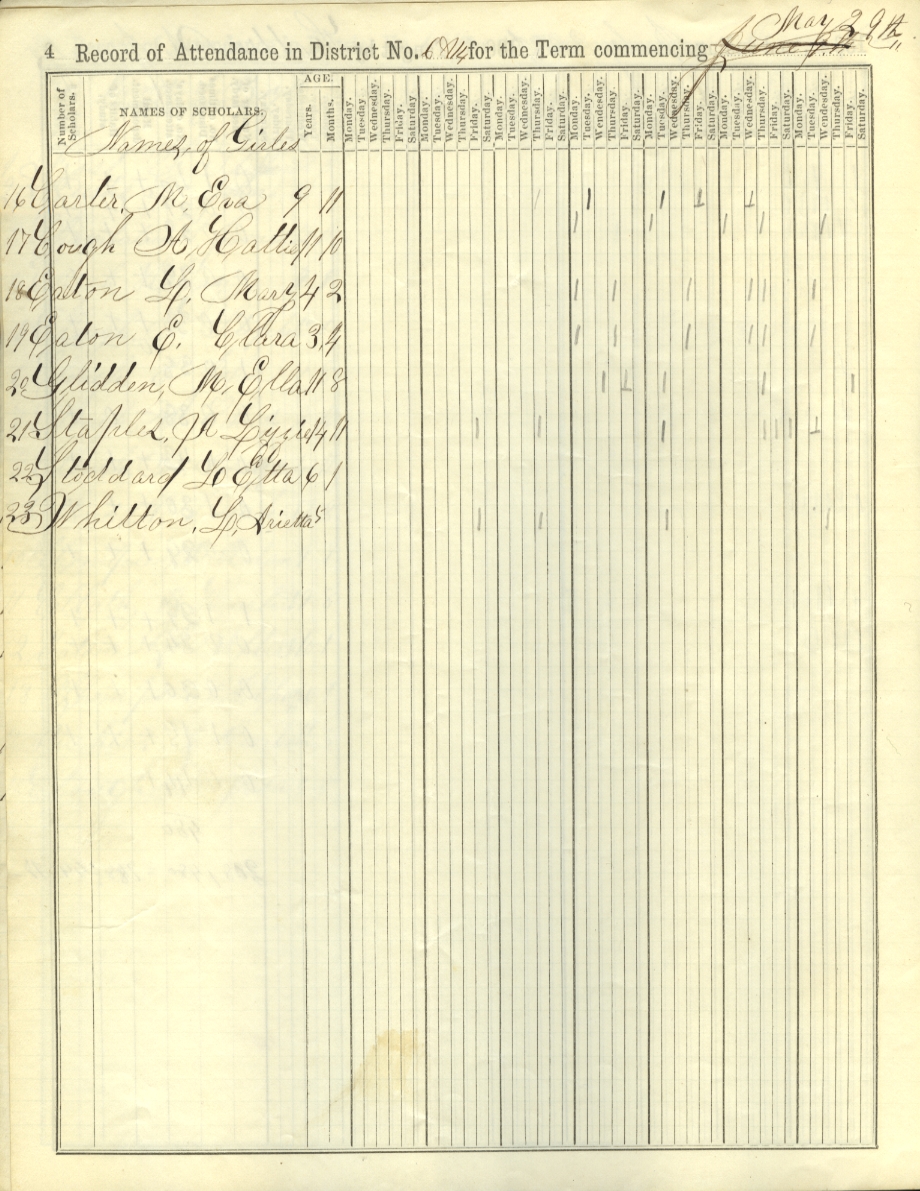 4 Record of Attendance in District No. 6 for the Term commencing May 29th
Number of Scholars. NAMES OF SCHOLARS. AGE. Years. Months. Monday. Tuesday Wednesday. Thursday. Friday. Saturday Monday. Tuesday. Wednesday. Thursday. Friday. Saturday. Monday. Tuesday. Wednesday. Thursday. Friday. Saturday. Monday. Tuesday. Wednesday. Thursday. Friday. Saturday. Monday. Tuesday. Wednesday. Thursday. Friday. Saturday. Monday. Tuesday. Wednesday. Thursday. Friday. Saturday. Monday. Tuesday. Wednesday. Thursday. Friday. Saturday.
Names, of Girles
16 Carter, M. Eva 9 11
17 Cough A. Hattie 11 10
18 Eaton L. Mary 4 2
19 Eaton E. Clara 3, 4
20 Glidden, M, Ella 11 8
21 Staples, A Lizzie 14 11
22 Stoddard L Etta 6 1
23 Whitton, L, Arietta 5